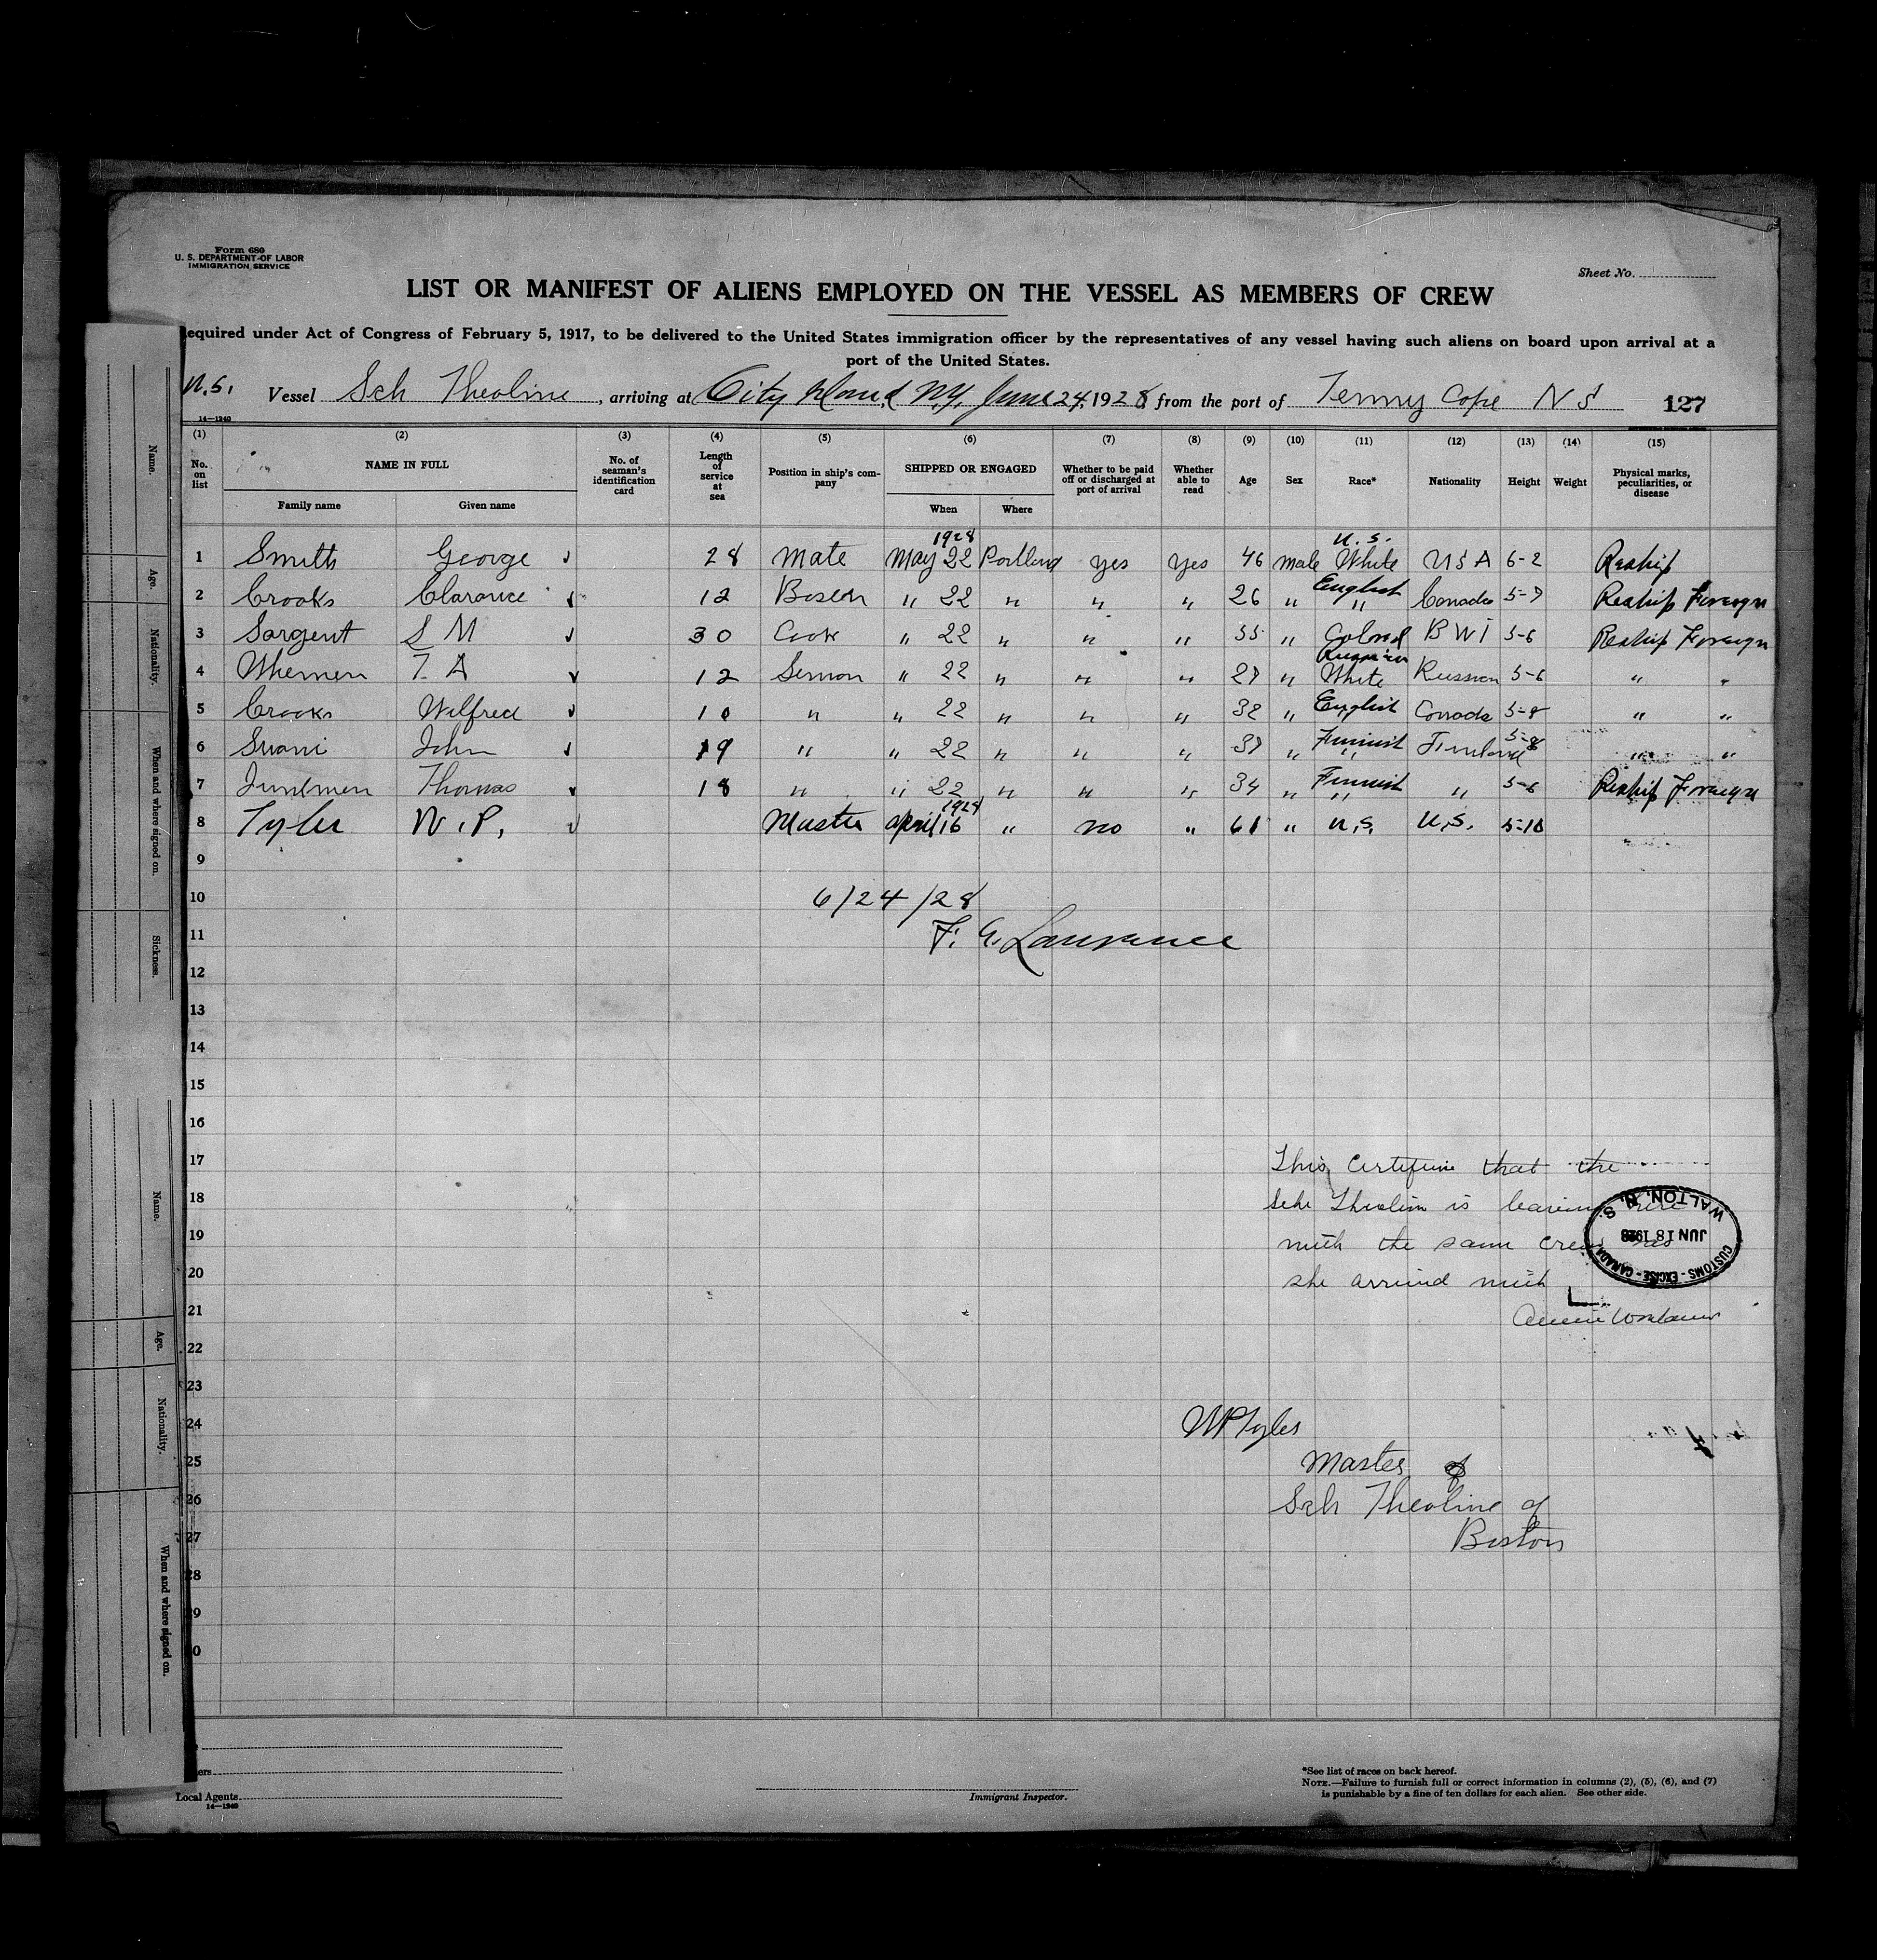 Form 680
U. S. DEPARTMENT OF LABOR
IMMIGRATION SERVICE
Sheet No.
LIST OR MANIFEST OF ALIENS EMPLOYED ON THE VESSEL AS MEMBERS OF CREW
equired under Act of Congress of February 5, 1917, to be delivered to the United States immigration officer by the representatives of any vessel having such aliens on board upon arrival at a
port of the United States.
U.S. Vessel Sch Theoline, arriving at City Island, N.Y. June 24, 1928, from the port of Tenny Cope N S 127
14—1240
(1) (2) (3) (4) (5) (6) (7) (8) (9) (10) (11) (12) (13) (14) (15)
No. on list NAME IN FULL No. of seaman's identification card Length of service at sea Position in ship's company SHIPPED OR ENGAGED Whether to be paid off or discharged at port of arrival Whether able to read Age Sex Race* Nationality Height Weight Physical marks, peculiarities, or disease
Family name Given name When Where
1928 U.S.
1 Smith George 28 Mate May 22 Portland yes yes 46 male White U S A 6-2 Reship
2 Crooks Clarance 12 Bosen " 22 " " " 26 " English " Canada 5-7 Reship Foreign
3 Sargent S M 30 Cook " 22 " " " 55 " Colored B W I 5-6 Reship Foreign
4 T A 12 " 22 " " " 27 " Russian White Russian 5-6 " "
5 Crooks Wilfred 10 " " 22 " " " 32 " English Canada 5-8 " "
6 Suani John 19 " " 22 " " " 37 " Finnish " Finland 5-8 " "
7 Thomas 18 " " 22 " " " 34 " Finnish " " 5-6 Reship Foreign
8 Tyler W. P. Master April 16 1928 " no " 61 " U.S. U.S. 5-10
9
10 6/24/28
11 F. G. Lawrance
12
13
14
15
16
17 This that the
18 Sch is leaving here
19 with the same crew as
20 she arrived with
WALTON, N. S.
JUN 18 1928
CUSTOMS - EXCISE - CANADA
21
22
23
24 W P Tyler
25 Master of
26 Sch Theoline of
27 Boston
28
29
0
ers
Local Agents
14—1240
Immigrant Inspector.
*See list of races on back hereof.
NOTE.—Failure to furnish full or correct information in columns (2), (5), (6), and (7)
is punishable by a fine of ten dollars for each alien. See other side.
Name.
Age.
Nationality.
When and where signed on.
Sickness.
Name.
Age.
Nationality.
When and where signed on.